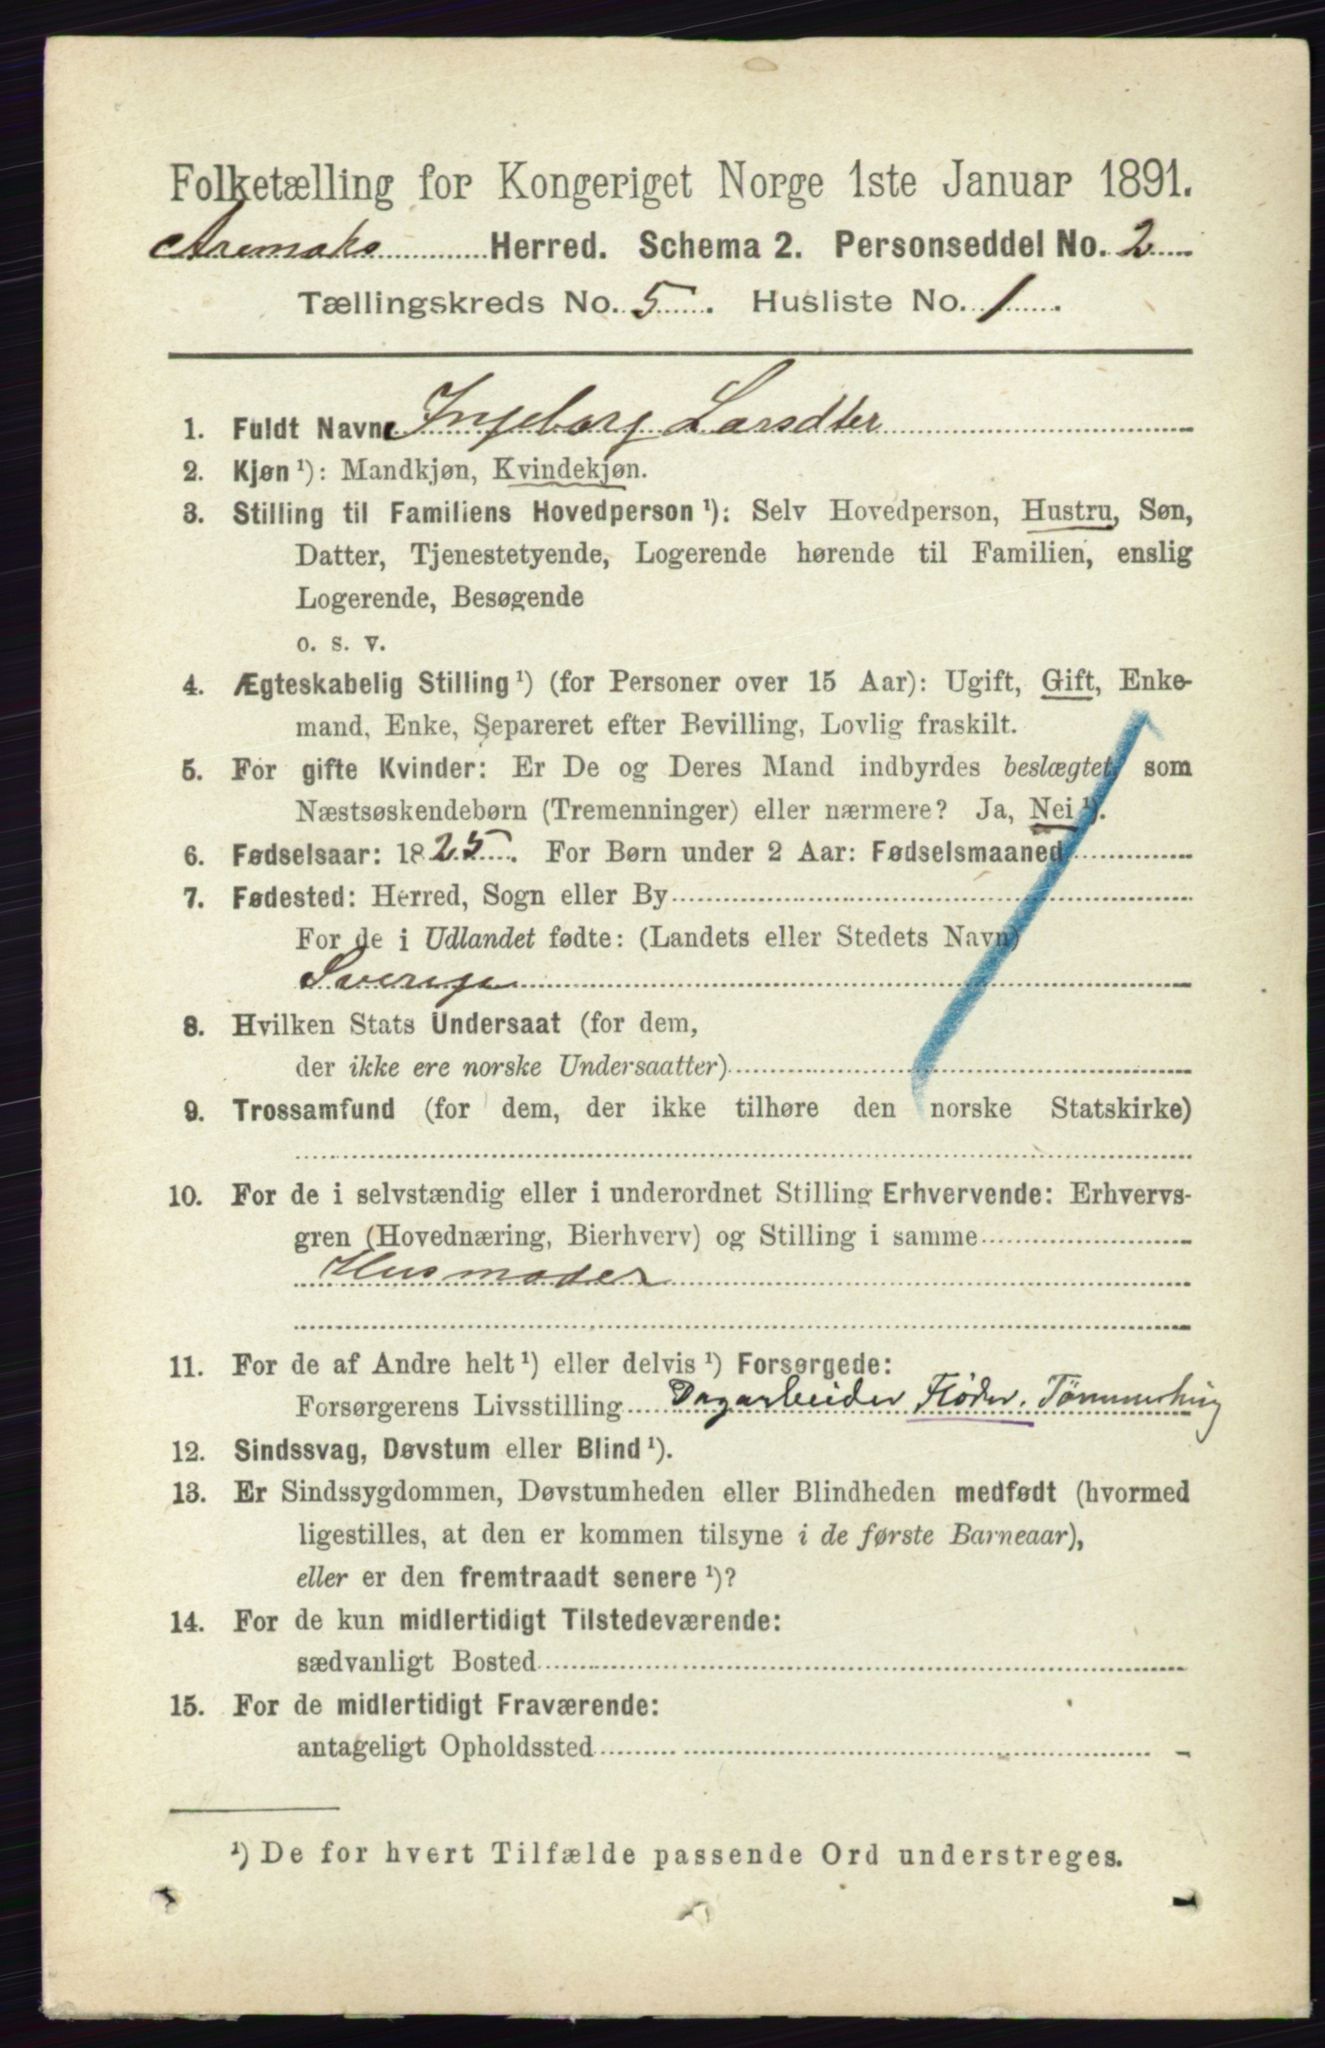 Folketælling for Kongeriget Norge 1ste Januar 1891.
Aremaks Herred. Schema 2. Personseddel No. 2
Tællingskreds No. 5. Husliste No. 1.
1. Fuldt Navn Ingeborg Larsdter
2. Kjøn ¹): Mandkjøn, Kvindekjøn.
3. Stilling til Familiens Hovedperson ¹): Selv Hovedperson, Hustru, Søn,
Datter, Tjenestetyende, Logerende hørende til Familien, enslig
Logerende, Besøgende
o. s. v.
4. Ægteskabelig Stilling ¹) (for Personer over 15 Aar): Ugift, Gift, Enke-
mand, Enke, Separeret efter Bevilling, Lovlig fraskilt.
5. For gifte Kvinder: Er De og Deres Mand indbyrdes beslægtet som
Næstsøskendebørn (Tremenninger) eller nærmere? Ja, Nei ¹).
6. Fødselsaar: 1825. For Børn under 2 Aar: Fødselsmaaned
7. Fødested: Herred, Sogn eller By
For de i Udlandet fødte: (Landets eller Stedets Navn)
Sverige
8. Hvilken Stats Undersaat (for dem,
der ikke ere norske Undersaatter)
9. Trossamfund (for dem, der ikke tilhøre den norske Statskirke)
10. For de i selvstændig eller i underordnet Stilling Erhvervende: Erhvervs-
gren (Hovednæring, Bierhverv) og Stilling i samme
Husmoder
11. For de af Andre helt ¹) eller delvis ¹) Forsørgede:
Forsørgerens Livsstilling Dagarbeider Fløder. Tömmerhug
12. Sindssvag, Døvstum eller Blind ¹).
13. Er Sindssygdommen, Døvstumheden eller Blindheden medfødt (hvormed
ligestilles, at den er kommen tilsyne i de første Barneaar),
eller er den fremtraadt senere ¹)?
14. For de kun midlertidigt Tilstedeværende:
sædvanligt Bosted
15. For de midlertidigt Fraværende:
antageligt Opholdssted
¹) De for hvert Tilfælde passende Ord understreges.